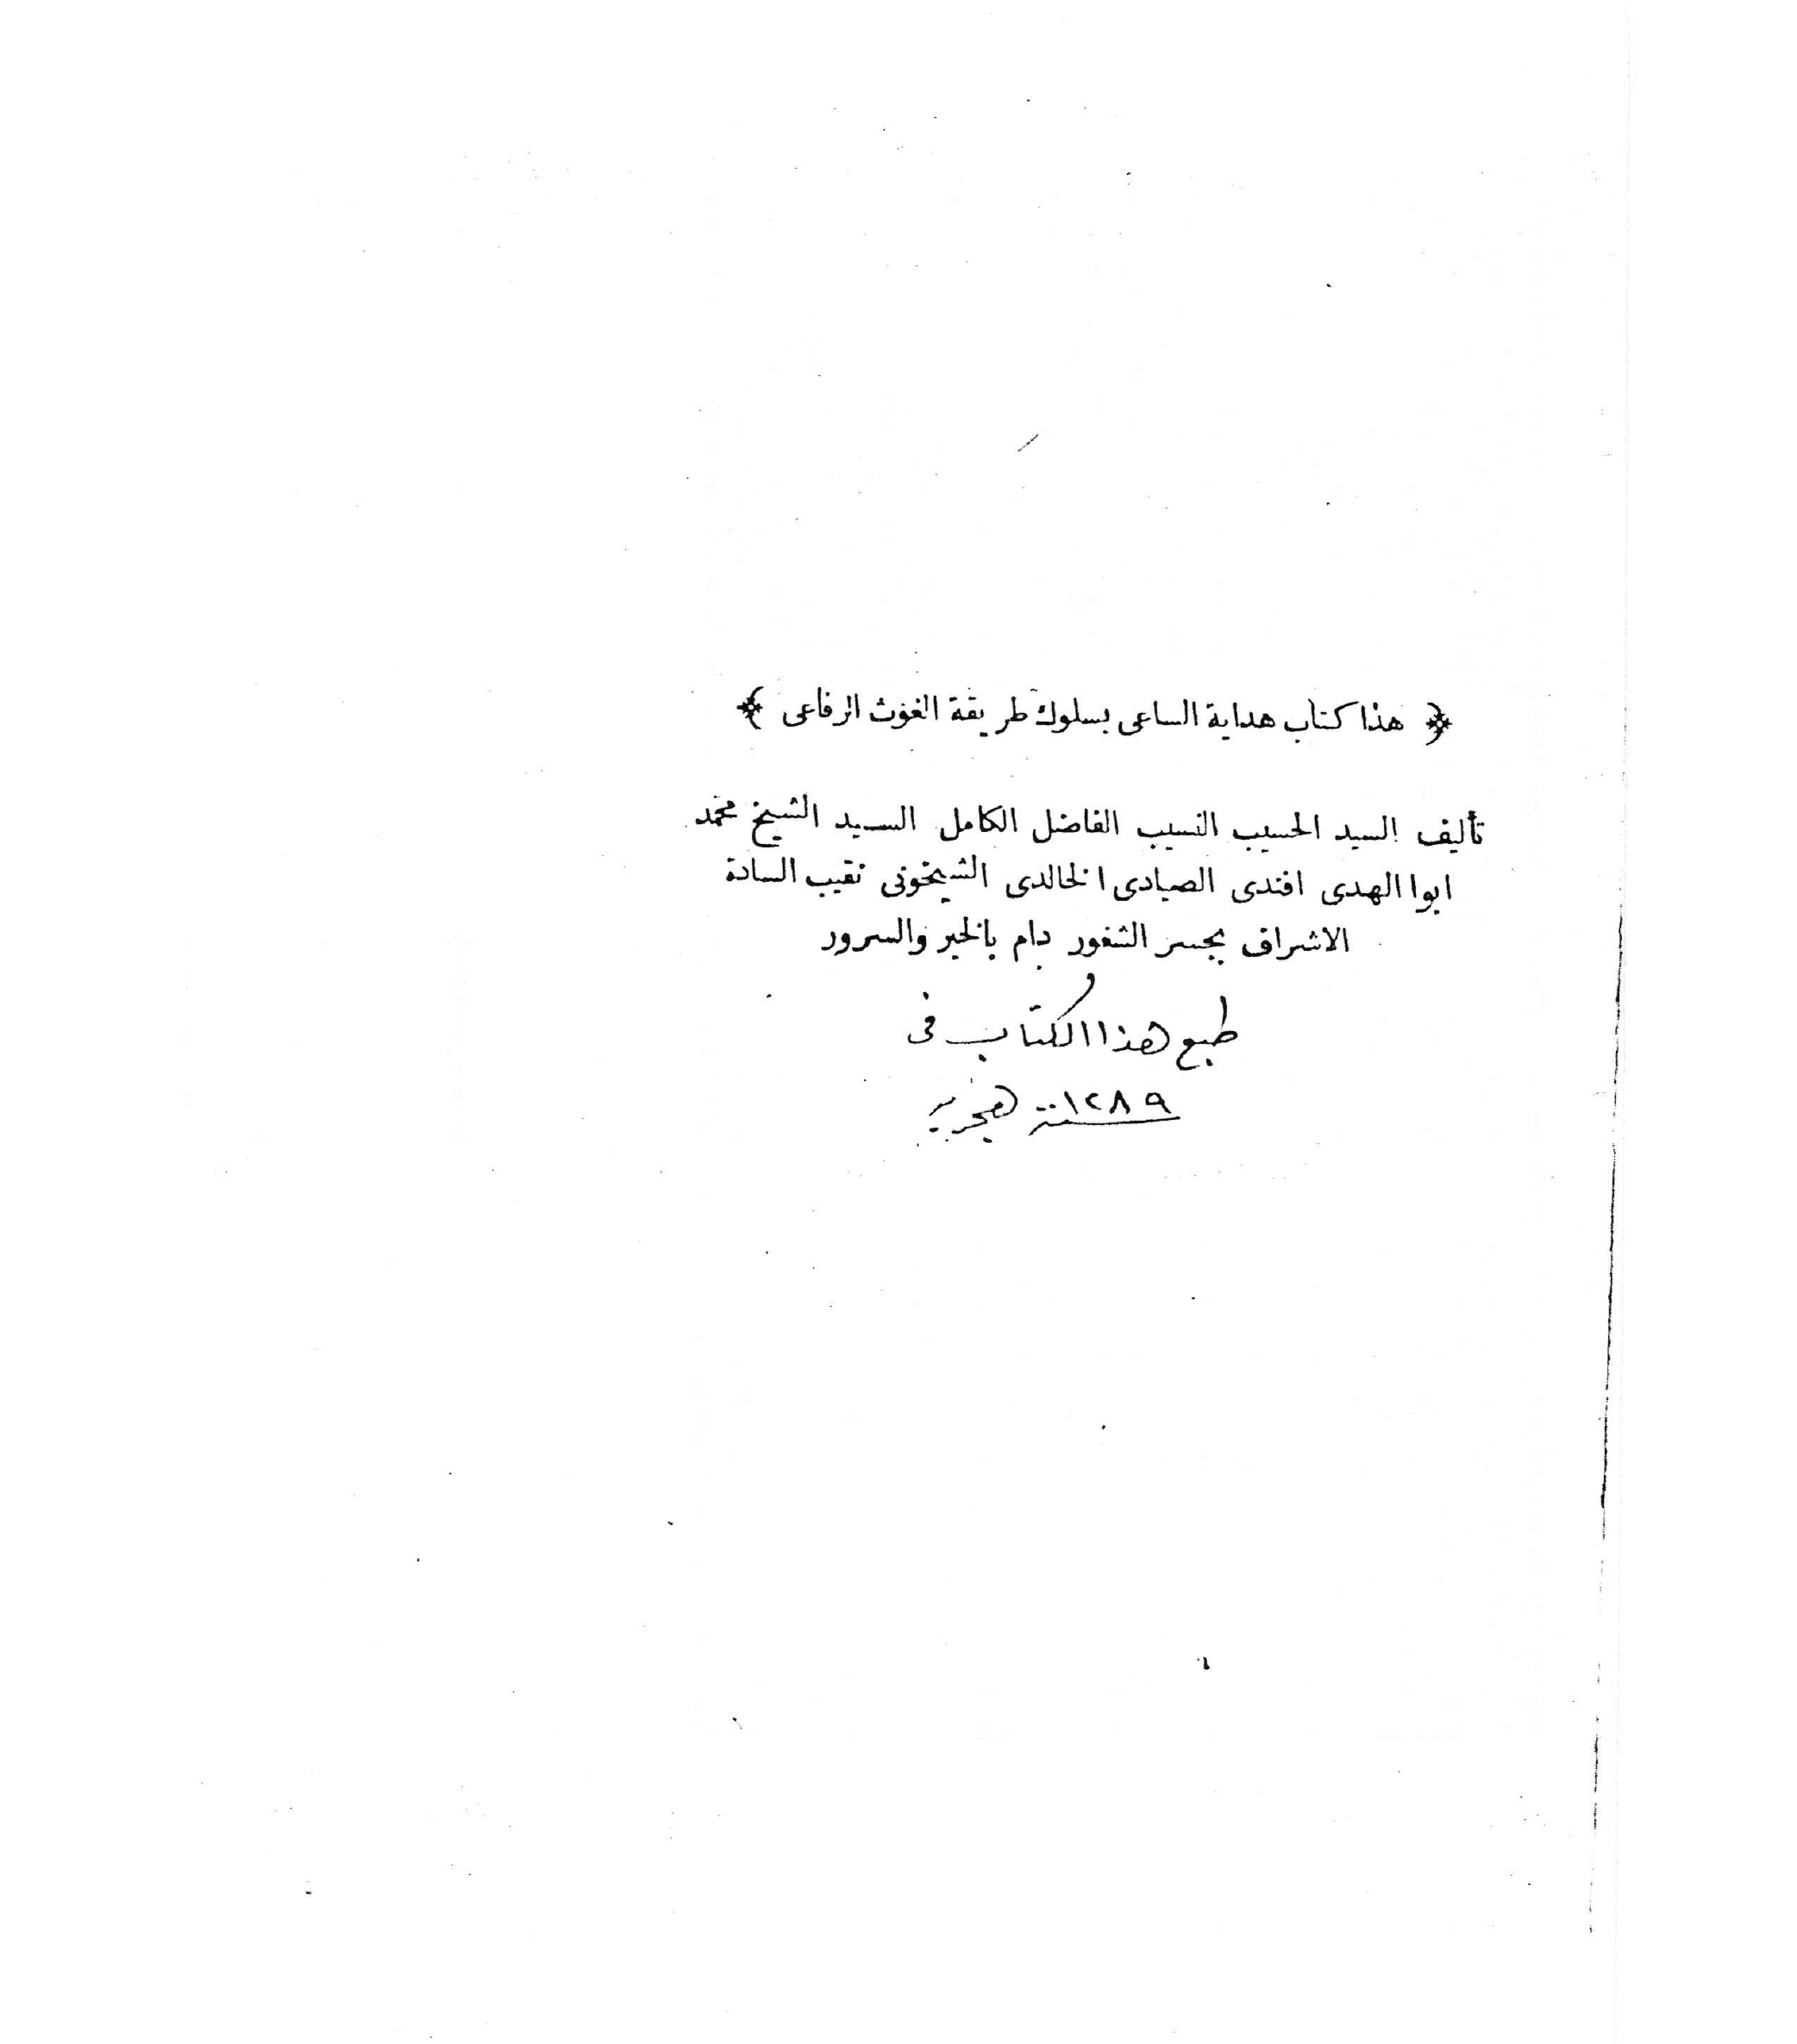 ﴿ هذا كتاب هداية الساعى بسلوك طريقة الغوث الرفاعى ﴾
تأليف السيد الحسيب النسيب الفاضل الكامل السيد الشيخ محمد
ابوا الهدى افندى الصيادى الخالدى الشيخونى نقيب السادة
الاشراق بجسر الشغور دام بالخير والسرور
طبع هذا الكتاب فى
سنة ١٢٨٩ هجرية